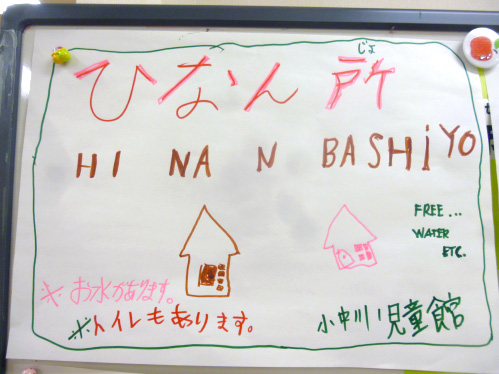 じょ
ひなん所
HI NA N BASHiYO
FREE...
WATER
ETC.
※お水があります。
※トイレもあります。
小中川児童館